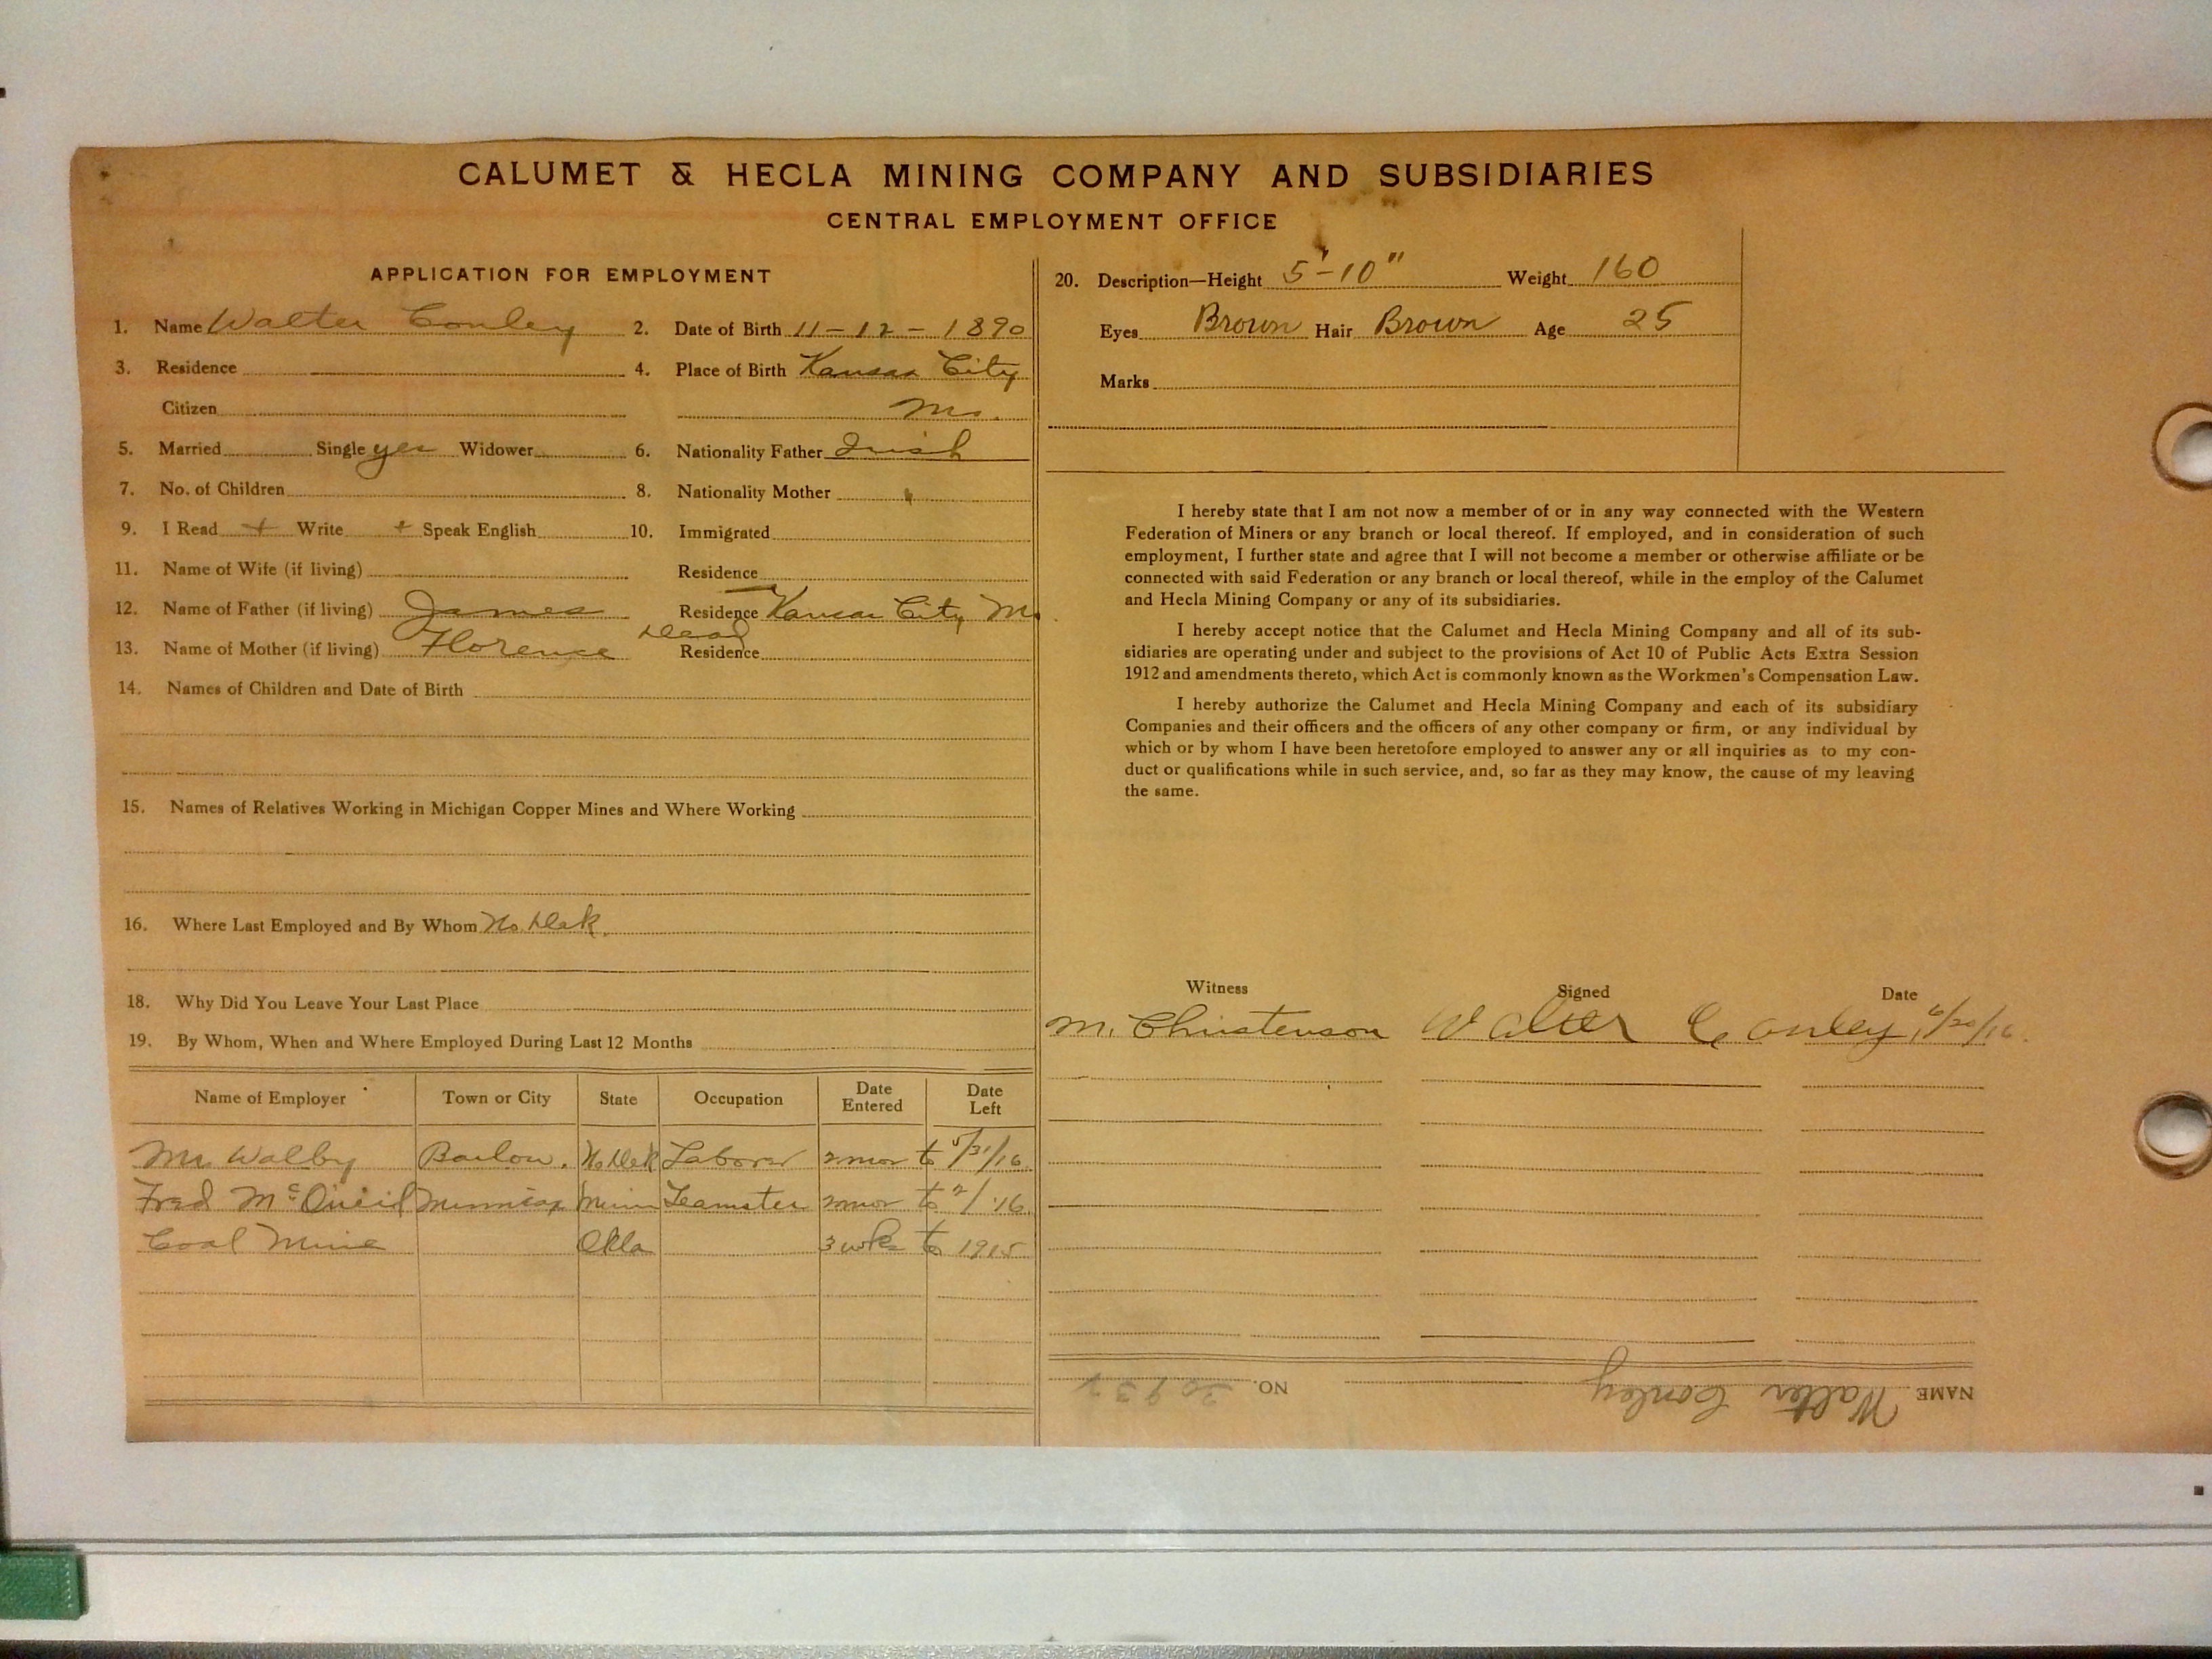 CALUMET & HECLA MINING COMPANY AND SUBSIDIARIES
CENTRAL EMPLOYMENT OFFICE
APPLICATION FOR EMPLOYMENT
1. Name Walter Conley 2. Date of Birth 11-12-1890
3. Residence 4. Place of Birth Kansas City
Citizen Mo.
5. Married Single yes Widower 6. Nationality Father Irish
7. No. of Children 8. Nationality Mother "
9. I Read + Write + Speak English 10. Immigrated
11. Name of Wife (if living) Residence
12. Name of Father (if living) James Residence Kansas City Mo.
13. Name of Mother (if living) Florence Dead Residence
14. Names of Children and Date of Birth
15. Names of Relatives Working in Michigan Copper Mines and Where Working
16. Where Last Employed and By Whom No Dak.
18. Why Did You Leave Your Last Place
19. By Whom, When and Where Employed During Last 12 Months
Name of Employer Town or City State Occupation Date Entered Date Left
Mr. Walby Barlow. No Dak Laborer 2 mos to 5/31/16
Fred Minn Teamster 2 mos to 2/'16
Coal Mine Okla 3 wks to 1915
20. Description—Height 5'-10" Weight 160
Eyes Brown Hair Brown Age 25
Marks
I hereby state that I am not now a member of or in any way connected with the Western
Federation of Miners or any branch or local thereof. If employed, and in consideration of such
employment, I further state and agree that I will not become a member or otherwise affiliate or be
connected with said Federation or any branch or local thereof, while in the employ of the Calumet
and Hecla Mining Company or any of its subsidiaries.
I hereby accept notice that the Calumet and Hecla Mining Company and all of its sub-
sidiaries are operating under and subject to the provisions of Act 10 of Public Acts Extra Session
1912 and amendments thereto, which Act is commonly known as the Workmen's Compensation Law.
I hereby authorize the Calumet and Hecla Mining Company and each of its subsidiary
Companies and their officers and the officers of any other company or firm, or any individual by
which or by whom I have been heretofore employed to answer any or all inquiries as to my con-
duct or qualifications while in such service, and, so far as they may know, the cause of my leaving
the same.
Witness Signed Date
M. Christenson Walter Conley, 6/20/16.
NAME Walter Conley NO.